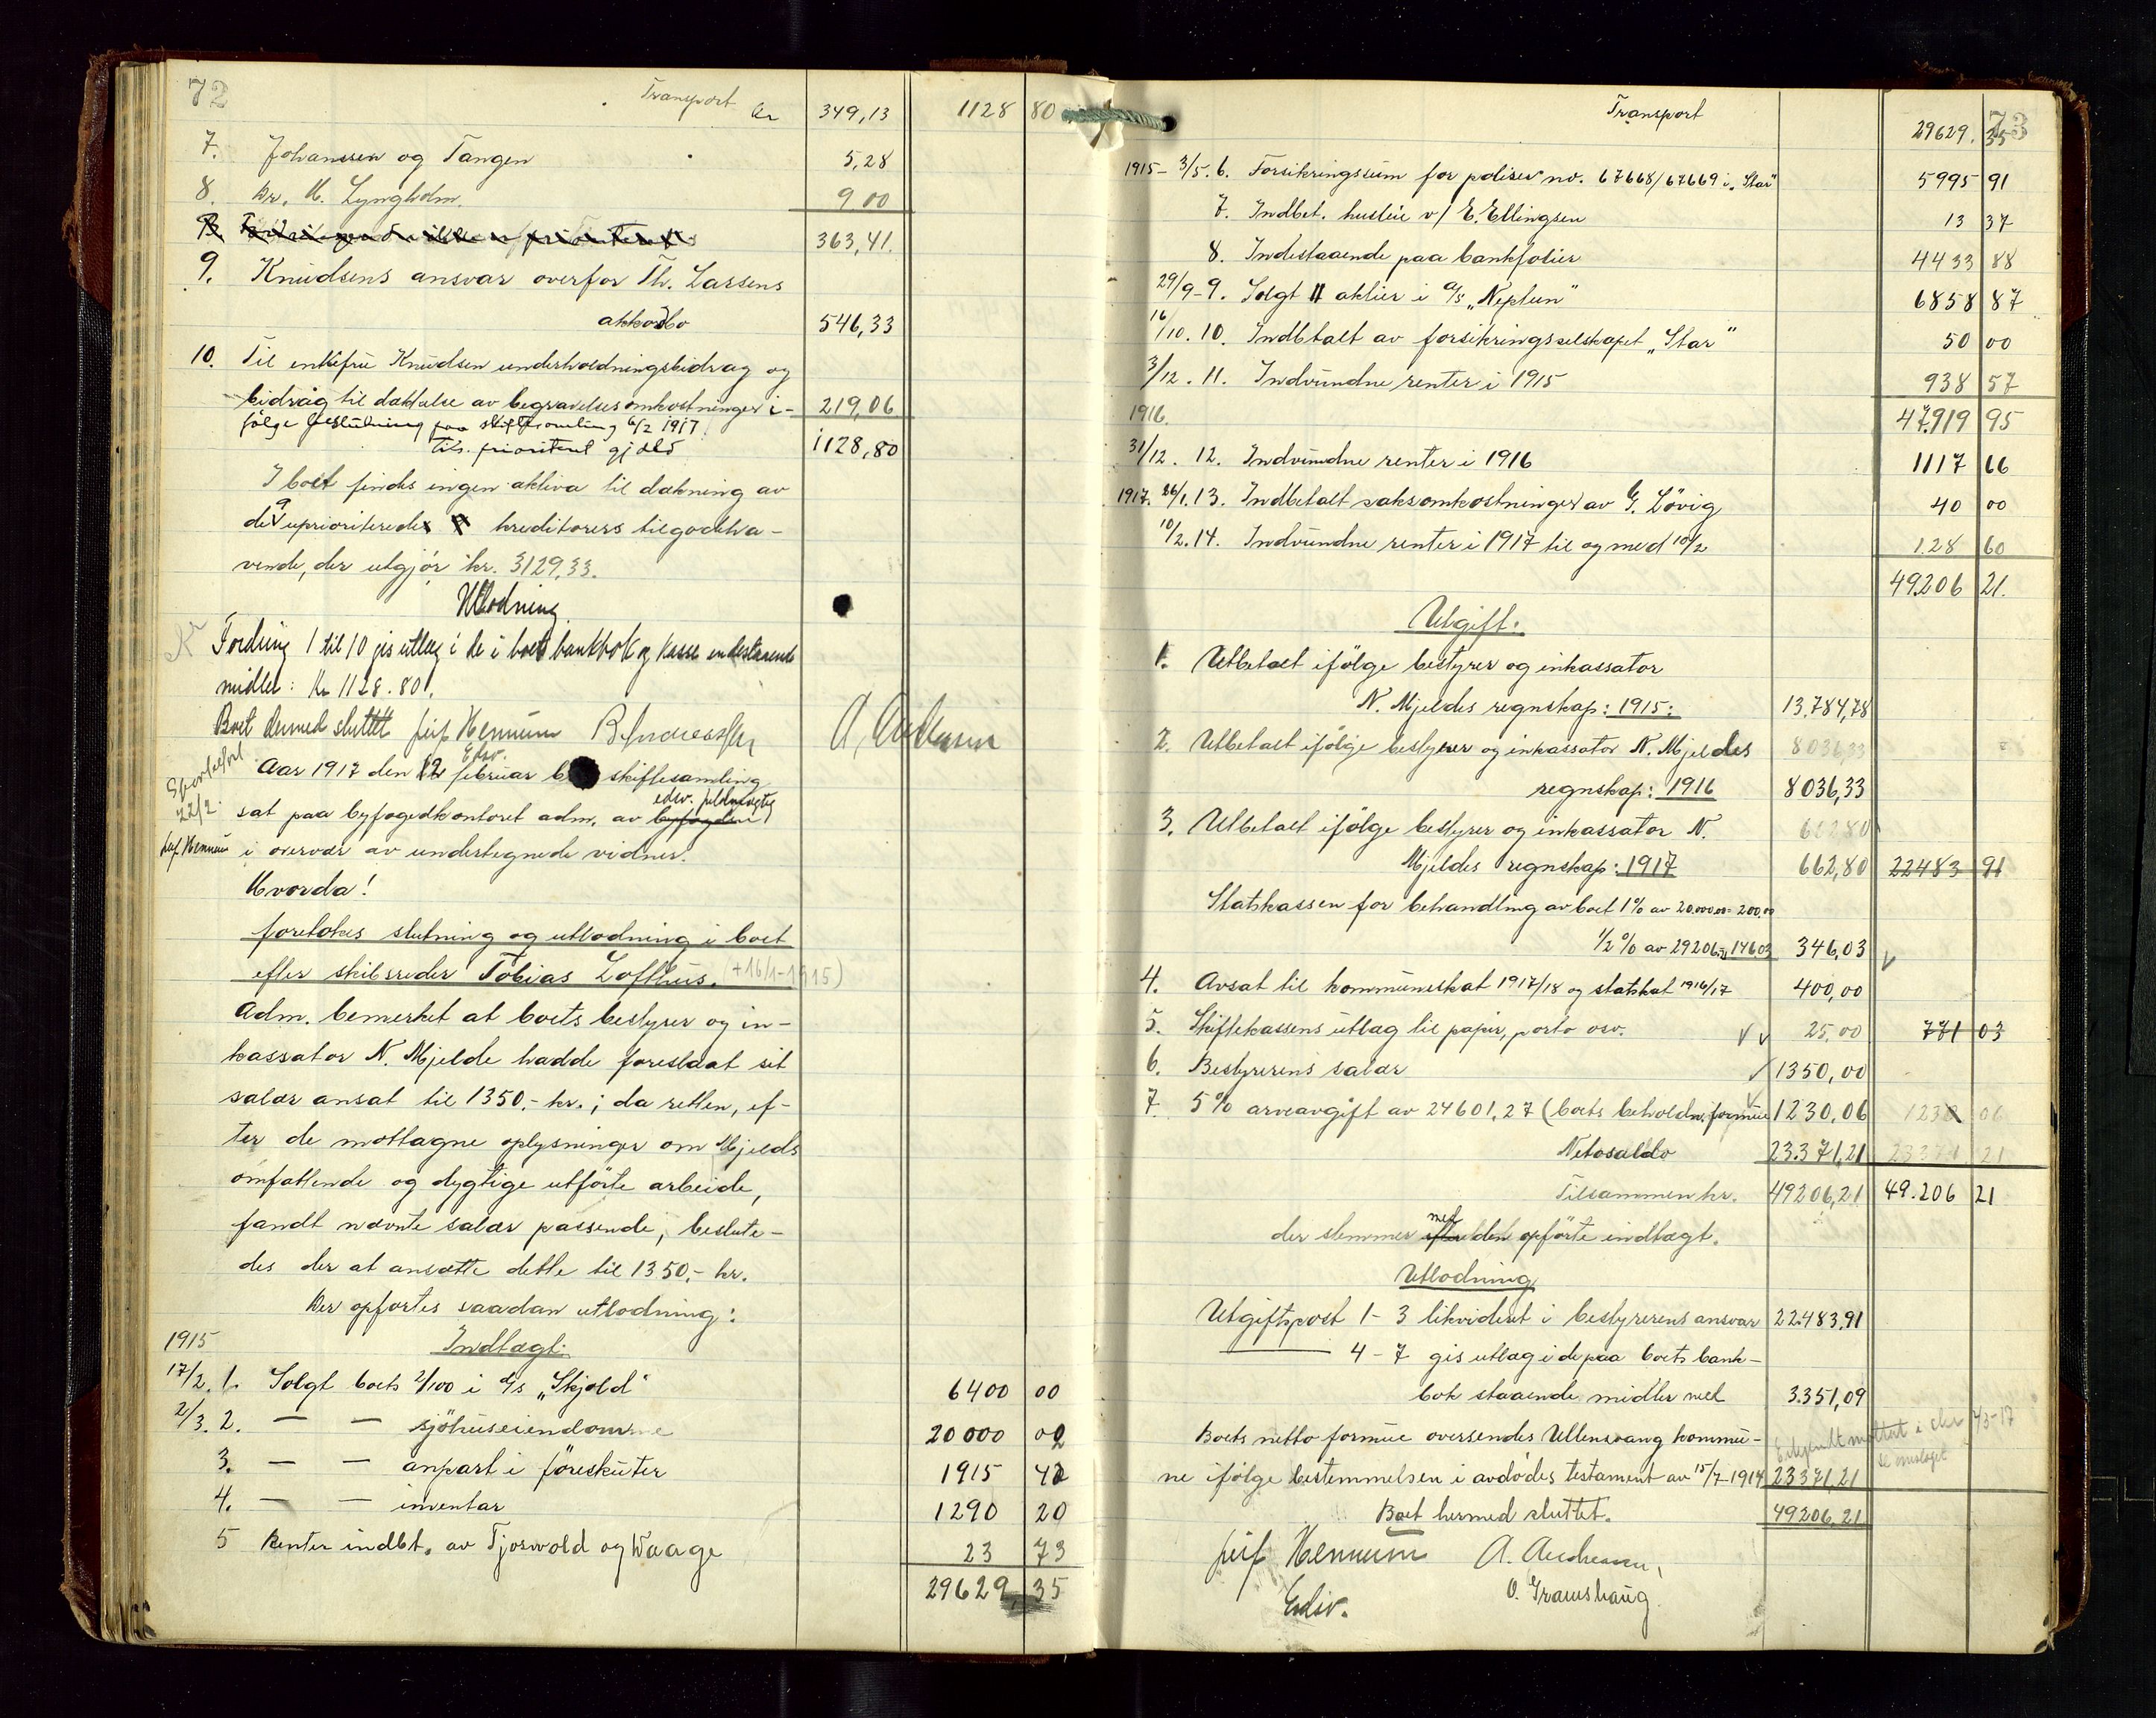 72
Transport Kr 349,13 1128 80
7. Johanssen og Tangen 5,28
8. Kr. M. Lyngholm. 9 00
363,41.
9. Knudsens ansvar overfor Th. Larsens
akkordbo 546,33
10. Til enkefru Knudsen underholdningsbidrag og
bidrag til dækkelse av begravelsesomkostninger i- 219,06
følge beslutning paa skiftesamling 6/2 1917.
tils. prioritert gjæld 1128,80
I boet findes ingen aktiva til dækning av
de uprioriterede kreditorers tilgodeha-
vende, der utgjør kr. 3129,33.
Utlodning
Fordring 1 til 10 gis utlæg i de i boets bankbok og kasse indestaaende
midler: Kr 1128.80.
Boet dermed sluttet. Leif Hennum A. Andersen
Edsv.
Aar 1917 den 12 februar b skiftesamling
22/2.
sat paa byfogedkontoret adm. av byfogden edsv. fuldmægtig
Leif Hennum i overvær av undertegnede vidner.
Hvorda!
foretokes slutning og utlodning i boet
efter skibsreder Tobias Lofthus. (+16/1-1915)
Adm. bemerket at boets bestyrer og in-
kassator N. Mjelde hadde foreslaat sit
salær ansat til 1350,- kr.; da retten, ef-
ter de mottagne oplysninger om Mjelds
omfattende og dygtige utførte arbeide,
fandt nævnte salær passende, beslutte-
des der at ansætte dette til 1350,- kr.
Der opførtes saadan utlodning:
1915 Indtægt:
17/2. 1. Solgt boets 2/100 i A/s "Skjold" 6400 00
2/3. 2. — — sjøhuseiendomme 20000 00
3. — — anpart i føreskuter 1915 42
4. — — inventar 1290 20
5 Renter indbt. av Tjosvold og Waage 23 73
29629, 35
73
Transport 29629. 35
1915- 3/5. 6. Forsikringssum for poliser no. 67668/67669 i "Star" 5995 91
7. Indbet. husleie v/ E. Ellingsen 13 37
8. Indestaaende paa bankfolier 4433 88
29/9-9. Solgt 11 aktier i A/s "Neptun" 6858 87
16/10. 10. Indbetalt av forsikringsselskapet "Star" 50 00
3/12. 11. Indvundne renter i 1915 938 57
1916. 47919 95
31/12. 12. Indvundne renter i 1916 1117 66
1917. 26/1. 13. Indbetalt saksomkostninger av G. Løvig 40 00
10/2. 14. Indvundne renter i 1917 til og med 10/2 128 60
49206 21.
Utgift:
1. Utbetalt ifølge bestyrer og inkassator
N. Mjeldes regnskap: 1915: 13.784,78
2. Utbetalt ifølge bestyrer og inkassator N. Mjeldes 8036,33
regnskap: 1916 8036,33
3. Utbetalt ifølge bestyrer og inkassator N. 662,80
Mjeldes regnskap: 1917 662,80 22483 91
Statskassen for behandling av boet 1% av 20.000,00= 200,00
1/2 % av 29206,21 146,03 346,03
4. Avsat til kommuneskat 1917/18 og statskat 1916/17 400,00
5. Skiftekassens utlæg til papir, porto osv. 25,00 771 03
6. Bestyrerens salær 1350,00
7 5% arveavgift av 24601,27 (boets beholdn. formue 1230,06 1230 06
Netosaldo 23.371,21 23371 21
Tilsammen kr. 49206,21 49.206 21
der stemmer med den opførte indtægt.
Utlodning
Utgiftspost 1-3 likvidert i bestyrerens ansvar 22.483,91
4-7 gis utlæg i de paa boets bank-
bok staaende midler med 3.351,09
Boets netto formue oversendes Ullensvang kommu-
ne ifølge bestemmelsen i avdødes testament av 15/7-1914 23371,21
Boet hermed sluttet. 49206,21
Leif Hennum A. Andersen,
Edsv. O. Gramshaug